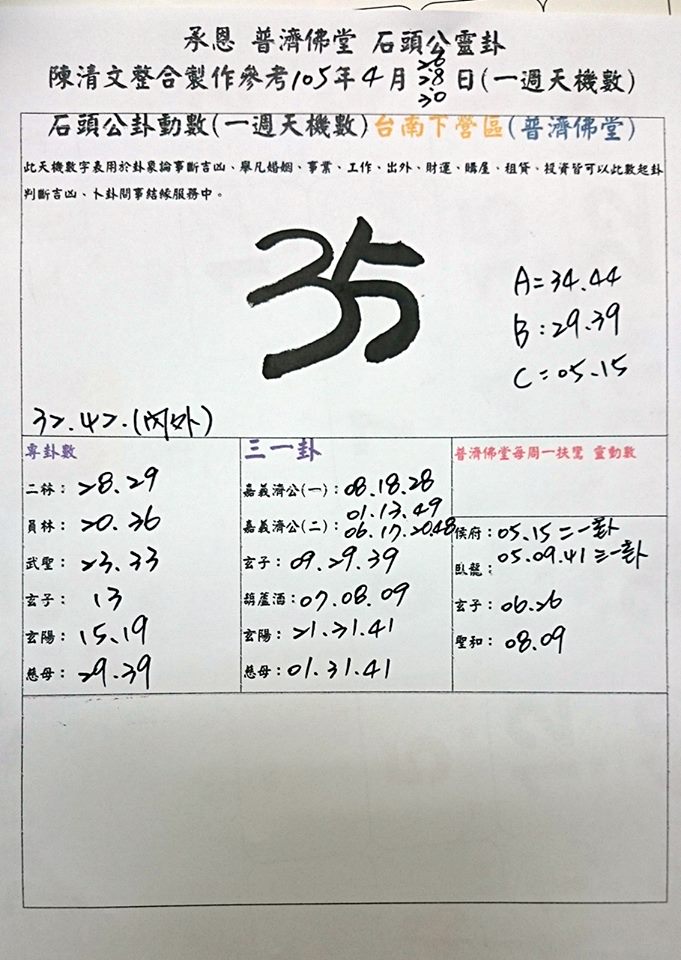 承恩 普濟佛堂 石頭公靈卦
陳清文整合製作參考105年4月26 28 30日(一週天機數)
石頭公卦動數(一週天機數)台南下營區(普濟佛堂)
此天機數字表用於卦象論事斷吉凶、舉凡婚姻、事業、工作、出外、財運、購屋、租賃、投資皆可以此數起卦
判斷吉凶、卜卦問事結緣服務中。
35
A=34.44
B:29.39
C=05.15
32.42.(內外)
專卦數
二林:28.29
員林:20.36
武聖:23.33
玄子:13
玄陽:15.19
慈母:29.39
三一卦
嘉義濟公(一):08.18.28
01.13.49
嘉義濟公(二):06.17.20.48
玄子:09.29.39
葫蘆酒:07.08.09
玄陽:21.31.41
慈母:01.31.41
普濟佛堂每周一扶鸞 靈動數
侯府:05.15二一卦
臥龍:05.09.41三一卦
玄子:06.26
聖和:08.09